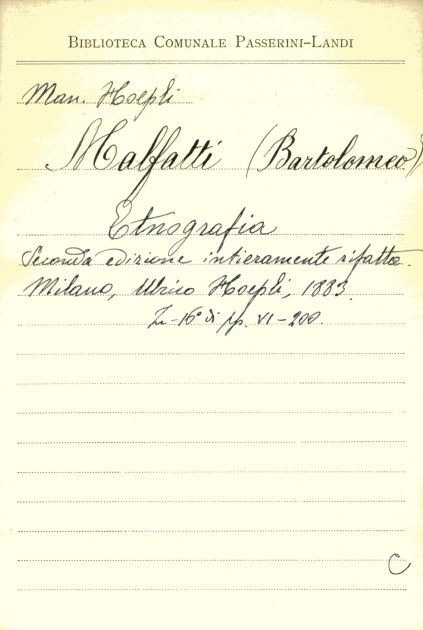 BIBLIOTECA COMUNALE PASSERINI-LANDI
Man. Hoepli
Malfatti (Bartolomeo)
Etnografia
Seconda edizione intieramente rifatta.
Milano, Ulrico Hoepli, 1883.
In-16° di pp. VI-200.
C